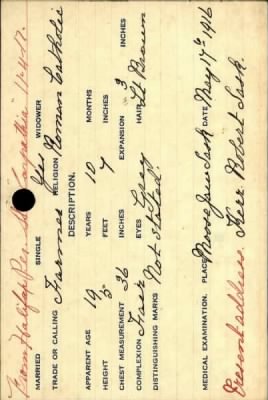 From Halifax Per SS "Lapathia" 11-4-17.
MARRIED SINGLE Yes WIDOWER
TRADE OR CALLING Farmer RELIGION Roman Catholic
DESCRIPTION.
APPARENT AGE 19 YEARS 10 MONTHS
HEIGHT 5 FEET 7 INCHES
CHEST MEASUREMENT 36 INCHES EXPANSION 3 INCHES
COMPLEXION Fair EYES Grey HAIR Lt Brown
DISTINGUISHING MARKS Not Stated.
MEDICAL EXAMINATION. PLACE Moose Jaw Sask DATE May 17th 1916
Present address Kerr Robert Sask.